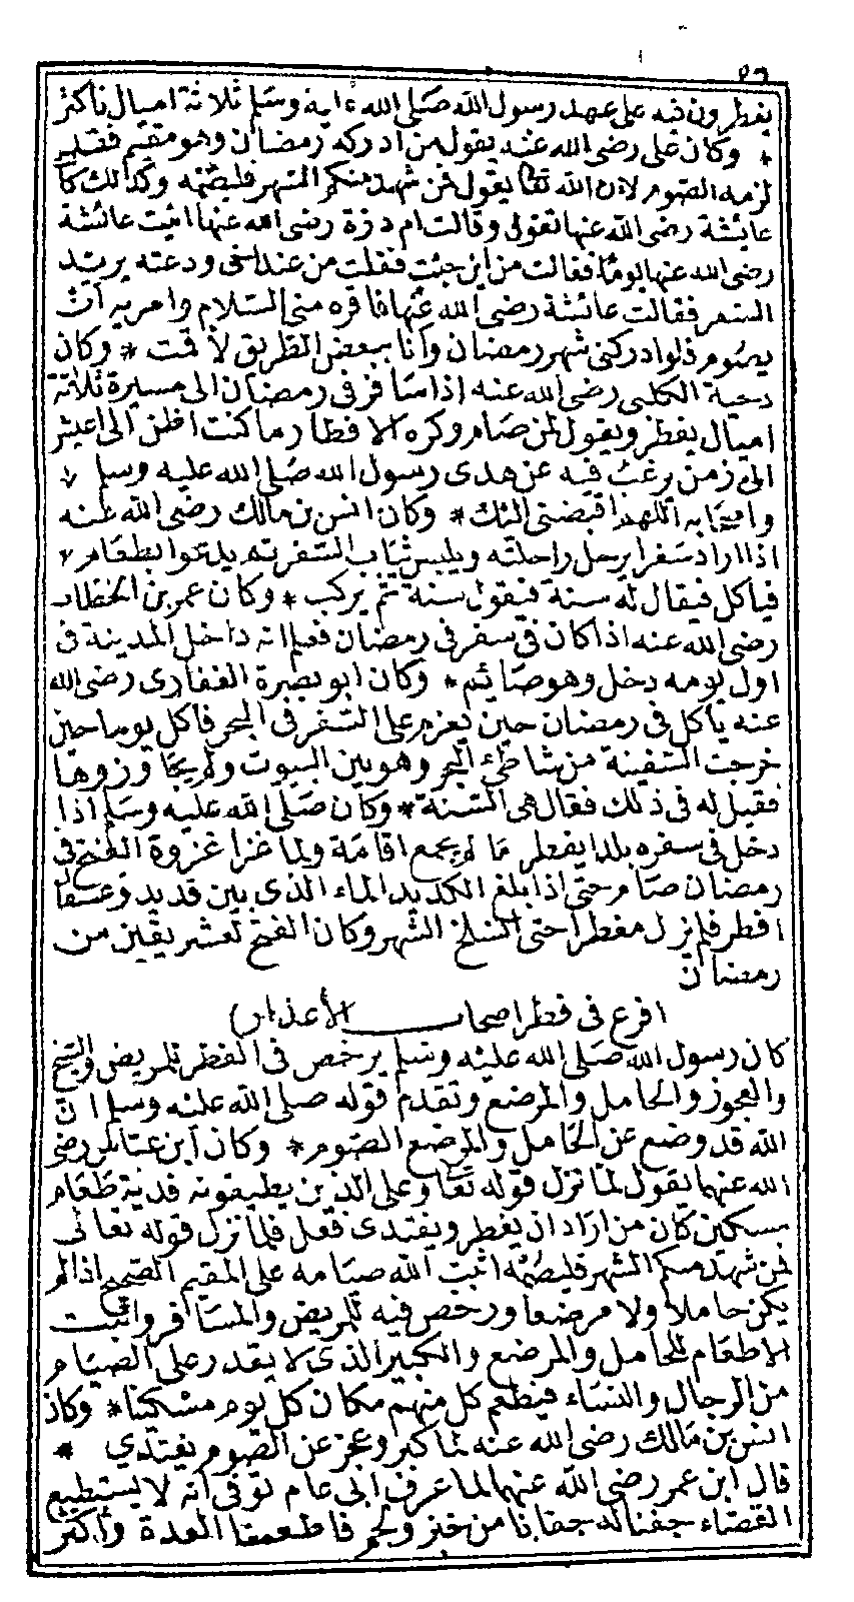 ٥٦
يفطرون فيه على عهد رسول الله صلى الله عليه وسلم ثلاثة اميال فاكثر
* وكان علي رضى الله عنه يقول من ادركه رمضان وهو مقيم فقد
لزمه الصوم لان الله تعا يقول فمن شهد منكم الشهر فليصمه وكذالك كا
عايشة رضى الله عنها تقول وقالت ام درة رضى الله عنها اتيت عائشة
رضى الله عنها يوما فقالت من اين جئت فقلت من عند اخى ودعته يريد
السفر فقالت عائشة رضى الله عنها فاقره منى السلام وامريه ان
يصوم فلو ادركنى شهر رمضان وانا ببعض الطريق لاقمت * وكان
دحية الكلبى رضى الله عنه اذا سافر فى رمضان الى مسيرة ثلاثة
اميال يفطر ويقول لمن صام وكره الافطار ما كنت اظن انى اعيش
الى زمن يرغب فيه عن هدى رسول الله صلى الله عليه وسلم
واصحابه اللهم اقبضنى اليك * وكان انس بن مالك رضى الله عنه
اذا اراد سفرا يرحل راحلته ويلبس ثياب السفر ثم يدعوا بطعام
فياكل فيقال له سنة فيقول سنة ثم يركب * وكان عمر بن الخطاب
رضى الله عنه اذا كان فى سفر فى رمضان فعلم انه داخل المدينة فى
اول يومه دخل وهو صائم * وكان ابو بصرة الغفارى رضى الله
عنه يأكل فى رمضان حين يعزم على السفر فى البحر فاكل يوما حين
خرجت السفينة من شاطئ البحر وهو بين البيوت ولم يجاوزوها
فقيل له فى ذلك فقال هى السنة * وكان صلى الله عليه وسلم اذا
دخل فى سفره بلدا يفطر ما لم يجمع اقامة ولما غزا غزوة الفتح فى
رمضان صام حتى اذا بلغ الكديد الماء الذى بين قديد وعسفا
افطر فلم يزل مفطرا حتى انسلخ الشهر وكان الفتح لعشر بقين من
رمضان
(فرع فى فطر اصحاب الأعذار)
كان رسول الله صلى الله عليه وسلم يرخص فى الفطر للمريض والشيخ
والعجوز والحامل والمرضع وتقدم قوله صلى الله عليه وسلم ان
الله قد وضع عن الحامل والمرضع الصوم * وكان ابن عباس رضى
الله عنهما يقول لما نزل قوله تعا وعلى الذين يطيقونه فدية طعام
مسكين كان من اراد ان يفطر ويفتدى فعل فلما نزل قوله تعالى
فمن شهد منكم الشهر فليصمه اثبت الله صيامه على المقيم الصحيح اذا لم
يكن حاملا ولا مرضعا ورخص فيه للمريض والمسافر واثبت
الاطعام للحامل والمرضع والكبير الذى لا يقدر على الصيام
من الرجال والنساء فيطعم كل منهم مكان كل يوم مسكينا * وكان
انس بن مالك رضى الله عنه لما كبر وعجز عن الصوم يفتدي *
قال ابن عمر رضى الله عنهما لما عرف ابى عام توفى انه لا يستطيع
القضاء جفنا له جفانا من خبز ولحم فاطعمنا العدة واكثر